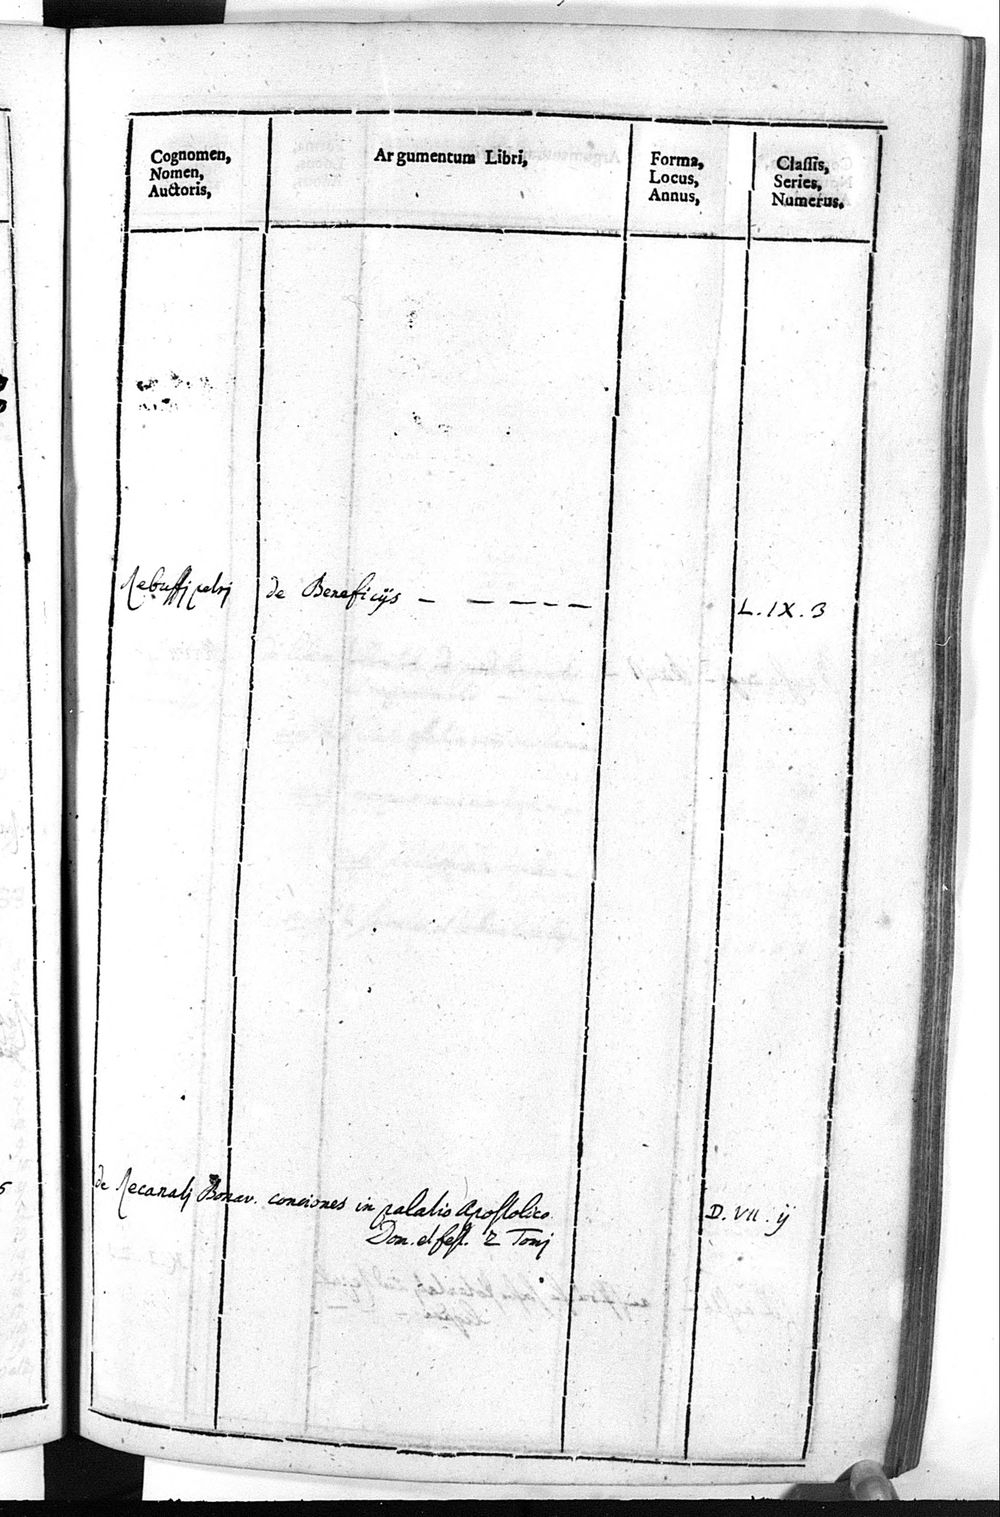 Cognomen,
Nomen,
Auctoris,
Argumentum Libri,
Forma,
Locus,
Annus,
Classis,
Series,
Numerus,
Rebuffj petrj de Beneficijs – – – – – – L. IX. 3
de Recanatj Bonav. conciones in palatio Apostolico D. VII. ij
Dom. et fest. 2 Tomj